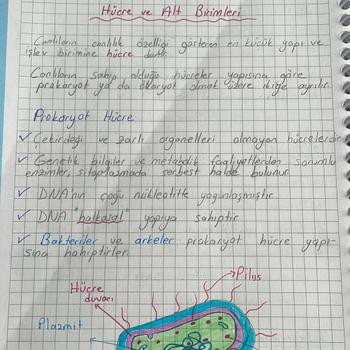 Hücre ve Alt Birimleri
Canlıların canlılık özelliği gösteren en küçük yapı ve
işlev birimine hücre denir.
Canlıların sahip olduğu hücreler yapısına göre
prokaryot ya da ökaryot olmak üzere ikiye ayrılır.
Prokaryot Hücre
✓ Çekirdeği ve zarlı organelleri olmayan hücrelerdir.
✓ Genetik bilgiler ve metabolik faaliyetlerden sorumlu
enzimler, sitoplazmada serbest halde bulunur.
✓ DNA'nın çoğu nükleotitte yoğunlaşmıştır.
✓ DNA "halkasal" yapıya sahiptir.
✓ Bakteriler ve arkeler prokaryot hücre yapı-
sına sahiptirler.
Pilus
Hücre
duvarı
Plazmit